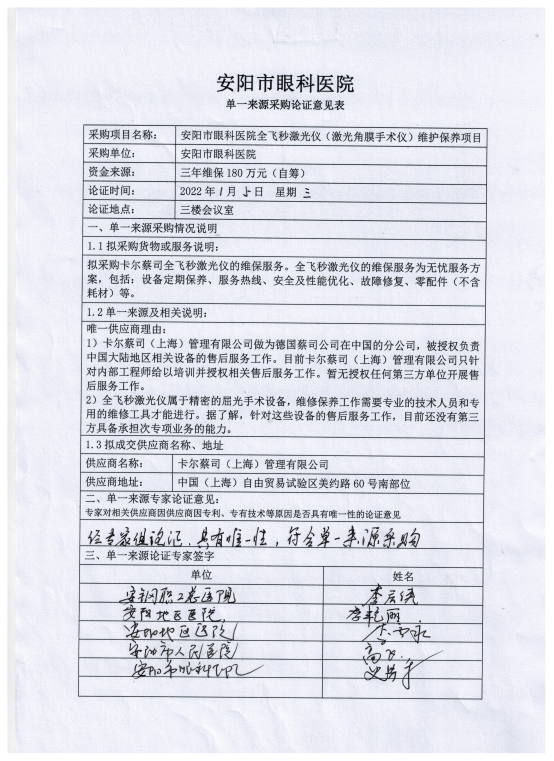 安阳市眼科医院
单一来源采购论证意见表
采购项目名称： 安阳市眼科医院全飞秒激光仪（激光角膜手术仪）维护保养项目
采购单位： 安阳市眼科医院
资金来源： 三年维保 180 万元（自筹）
论证时间： 2022 年 1 月 5 日 星期 三
论证地点： 三楼会议室
一、单一来源采购情况说明
1.1 拟采购货物或服务说明：
拟采购卡尔蔡司全飞秒激光仪的维保服务。全飞秒激光仪的维保服务为无忧服务方
案，包括：设备定期保养、服务热线、安全及性能优化、故障修复、零配件（不含
耗材）等。
1.2 单一来源及相关说明：
唯一供应商理由：
1）卡尔蔡司（上海）管理有限公司做为德国蔡司公司在中国的分公司，被授权负责
中国大陆地区相关设备的售后服务工作。目前卡尔蔡司（上海）管理有限公司只针
对内部工程师给以培训并授权相关售后服务工作。暂无授权任何第三方单位开展售
后服务工作。
2）全飞秒激光仪属于精密的屈光手术设备，维修保养工作需要专业的技术人员和专
用的维修工具才能进行。据了解，针对这些设备的售后服务工作，目前还没有第三
方具备承担次专项业务的能力。
1.3 拟成交供应商名称、地址
供应商名称： 卡尔蔡司（上海）管理有限公司
供应商地址： 中国（上海）自由贸易试验区美约路 60 号南部位
二、单一来源专家论证意见：
专家对相关供应商因供应商因专利、专有技术等原因是否具有唯一性的论证意见
经专家组论证，具有唯一性，符合单一来源采购
三、单一来源论证专家签字
单位 姓名
安钢职工总医院
安阳地区医院 李艳丽
安阳地区医院
安阳市人民医院
安阳市眼科医院